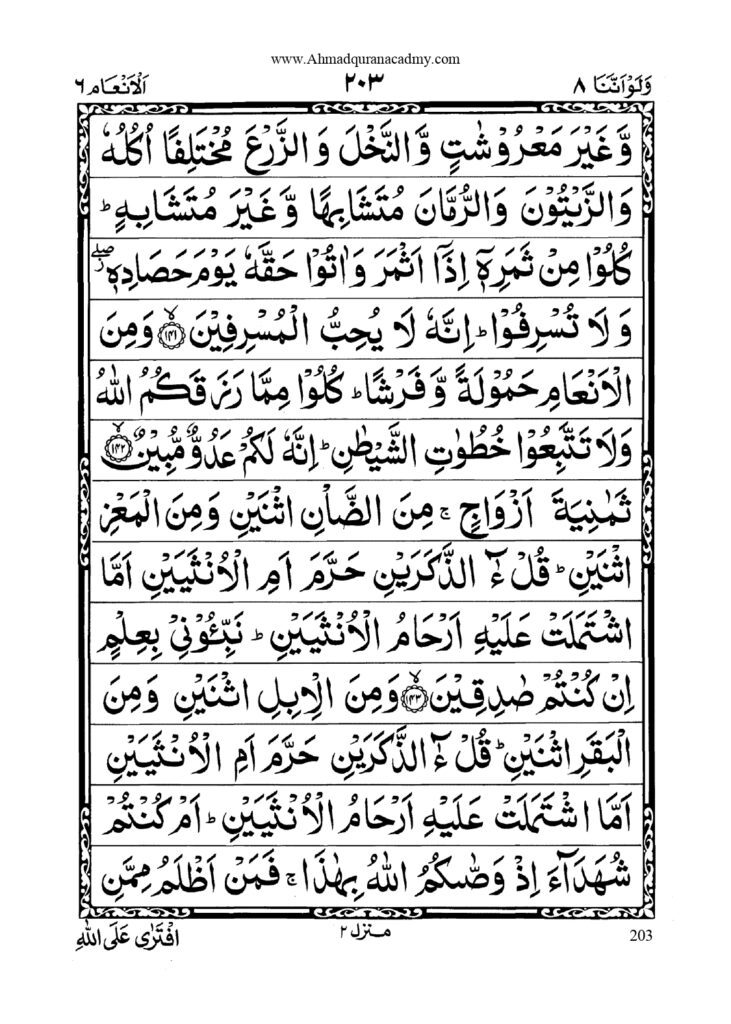 www.Ahmadquranacadmy.com
وَلَوْاَنَّنَا ٨ ٢٠٣ اَلْاَنْعَام ٦
وَّ غَيْرَ مَعْرُوْشٰتٍ وَّ النَّخْلَ وَ الزَّرْعَ مُخْتَلِفًا اُكُلُهٗ
وَالزَّيْتُوْنَ وَالرُّمَّانَ مُتَشَابِهًا وَّ غَيْرَ مُتَشَابِهٍ ؕ
كُلُوْا مِنْ ثَمَرِهٖۤ اِذَاۤ اَثْمَرَ وَاٰتُوْا حَقَّهٗ يَوْمَ حَصَادِهٖ ۖ٘
وَ لَا تُسْرِفُوْا ؕ اِنَّهٗ لَا يُحِبُّ الْمُسْرِفِيْنَ ﴿۱۴۱﴾ۙ وَ مِنَ
الْاَنْعَامِ حَمُوْلَةً وَّ فَرْشًا ؕ كُلُوْا مِمَّا رَزَقَكُمُ اللّٰهُ
وَلَا تَتَّبِعُوْا خُطُوٰتِ الشَّيْطٰنِ ؕ اِنَّهٗ لَكُمْ عَدُوٌّ مُّبِيْنٌ ﴿۱۴۲﴾ۙ
ثَمٰنِيَةَ اَزْوَاجٍ ۚ مِنَ الضَّاْنِ اثْنَيْنِ وَمِنَ الْمَعْزِ
اثْنَيْنِ ؕ قُلْ ءٰٓالذَّكَرَيْنِ حَرَّمَ اَمِ الْاُنْثَيَيْنِ اَمَّا
اشْتَمَلَتْ عَلَيْهِ اَرْحَامُ الْاُنْثَيَيْنِ ؕ نَبِّـُٔوْنِيْ بِعِلْمٍ
اِنْ كُنْتُمْ صٰدِقِيْنَ ﴿۱۴۳﴾ۙ وَمِنَ الْاِبِلِ اثْنَيْنِ وَمِنَ
الْبَقَرِ اثْنَيْنِ ؕ قُلْ ءٰٓالذَّكَرَيْنِ حَرَّمَ اَمِ الْاُنْثَيَيْنِ
اَمَّا اشْتَمَلَتْ عَلَيْهِ اَرْحَامُ الْاُنْثَيَيْنِ ؕ اَمْ كُنْتُمْ
شُهَدَآءَ اِذْ وَصّٰىكُمُ اللّٰهُ بِهٰذَا ۚ فَمَنْ اَظْلَمُ مِمَّنِ
افْتَرٰى عَلَى اللّٰهِ منزل ٢ 203